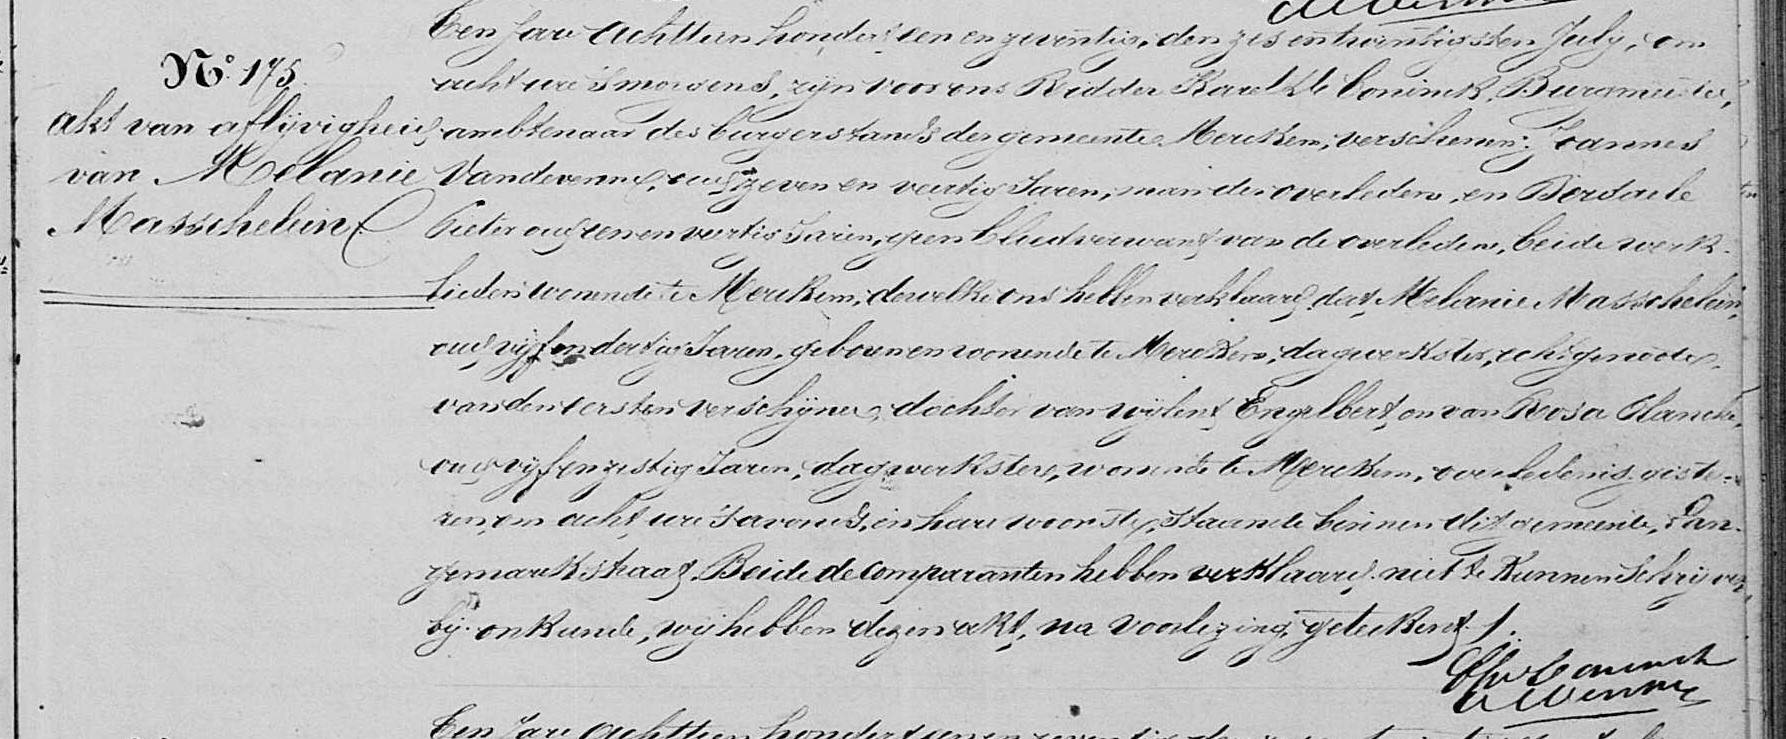 N° 175
akt van aflijvigheid
van Melanie
Masschelein
Een Jaar achttien honderd een en zeventig, den zes en twintigsten July, om
acht ure 's morgens, zijn voor ons Ridder Karel de Coninck, Burgmeester,
ambtenaar des burgerstands der gemeente Merckem, verschenen: Joannes
Vandevenne, oud zeven en veertig Jaren, man der overledene, en
Pieter oud een en veertig Jaren, geen bloedverwant van de overledene, beide werk-
lieden wonende te Merckem, dewelke ons hebben verklaard dat Melanie Masschelein,
oud vijf en dertig Jaren, geboren en woonende te Merckem, dagwerkster, echtgenoote
van den eersten verschijner, dochter van wijlent Engelbert en van Rosa
oud vijf en zestig Jaren, dagwerkster, wonende te Merckem, overleden is giste-
ren, om acht ure 's avonds, in hare woonste, staande binnen dit gemeente, Lan-
gemarkstraat. Beide de comparanten hebben verklaard niet te kunnen schrijven,
bij onkunde, wij hebben dezen akt, na voorlezing, geteekent /.
de Coninck
de Merckem
Een Jaar achttien honderd een en zeventig